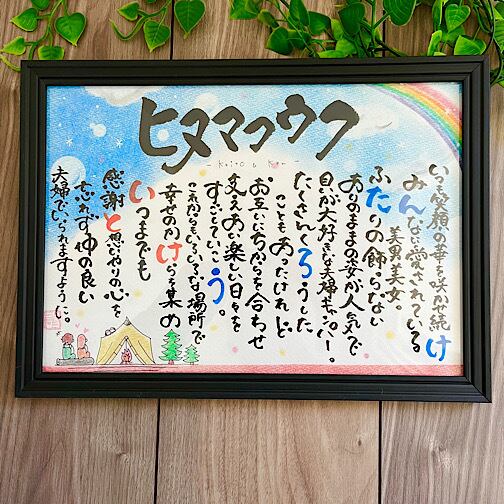 ヒヌマフウフ
いつも笑顔の華を咲かせ続け
みんなに愛されている。
美男美女。
ふたりの飾らない
ありのままの姿が人気で
旦が大好きな夫婦
たくさんくろうした
こともあったけれど
お互いにちからを合わせ
支えあい楽しい日々を
すごしていこう。
これからもいろいろな場所で
幸せのかけらを集め
いつまでも
感謝と思いやりの心を
忘れず仲の良い
夫婦でいられますように。